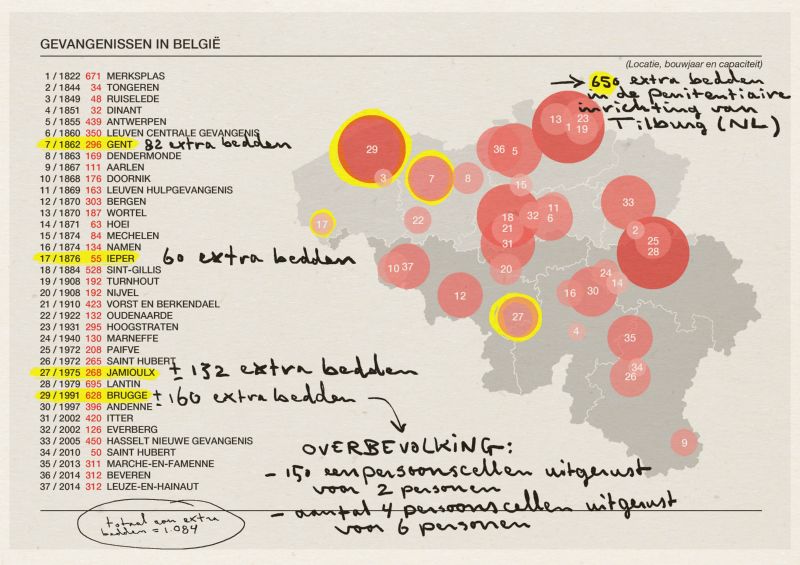 GEVANGENISSEN IN BELGIË
(Locatie, bouwjaar en capaciteit)
→ 650 extra bedden
in de Penitentiaire
inrichting van
Tilburg (NL)
1 / 1822 671 MERKSPLAS
2 / 1844 34 TONGEREN
3 / 1849 48 RUISELEDE
4 / 1851 32 DINANT
5 / 1855 439 ANTWERPEN
6 / 1860 350 LEUVEN CENTRALE GEVANGENIS
7 / 1862 296 GENT 82 extra bedden
8 / 1863 169 DENDERMONDE
9 / 1867 111 AARLEN
10 / 1868 176 DOORNIK
11 / 1869 163 LEUVEN HULPGEVANGENIS
12 / 1870 303 BERGEN
13 / 1870 187 WORTEL
14 / 1871 63 HOEI
15 / 1874 84 MECHELEN
16 / 1874 134 NAMEN
17 / 1876 55 IEPER 60 extra bedden
18 / 1884 528 SINT-GILLIS
19 / 1908 192 TURNHOUT
20 / 1908 192 NIJVEL
21 / 1910 423 VORST EN BERKENDAEL
22 / 1922 132 OUDENAARDE
23 / 1931 295 HOOGSTRATEN
24 / 1940 130 MARNEFFE
25 / 1972 208 PAIFVE
26 / 1972 265 SAINT HUBERT
27 / 1975 268 JAMIOULX ± 132 extra bedden
28 / 1979 695 LANTIN
29 / 1991 628 BRUGGE ± 160 extra bedden
30 / 1997 396 ANDENNE
31 / 2002 420 ITTER
32 / 2002 126 EVERBERG
33 / 2005 450 HASSELT NIEUWE GEVANGENIS
34 / 2010 50 SAINT HUBERT
35 / 2013 311 MARCHE-EN-FAMENNE
36 / 2014 312 BEVEREN
37 / 2014 312 LEUZE-EN-HAINAUT
OVERBEVOLKING:
- 150 eenpersoonscellen uitgerust
voor 2 personen
- aantal 4 persoonscellen uitgerust
voor 6 personen
totaal aan extra
bedden = 1.084
13
23
1
19
29
36
5
3
7
8
15
33
17
22
18
32
11
6
21
2
31
25
28
10
37
20
24
14
12
16
30
27
4
35
34
26
9